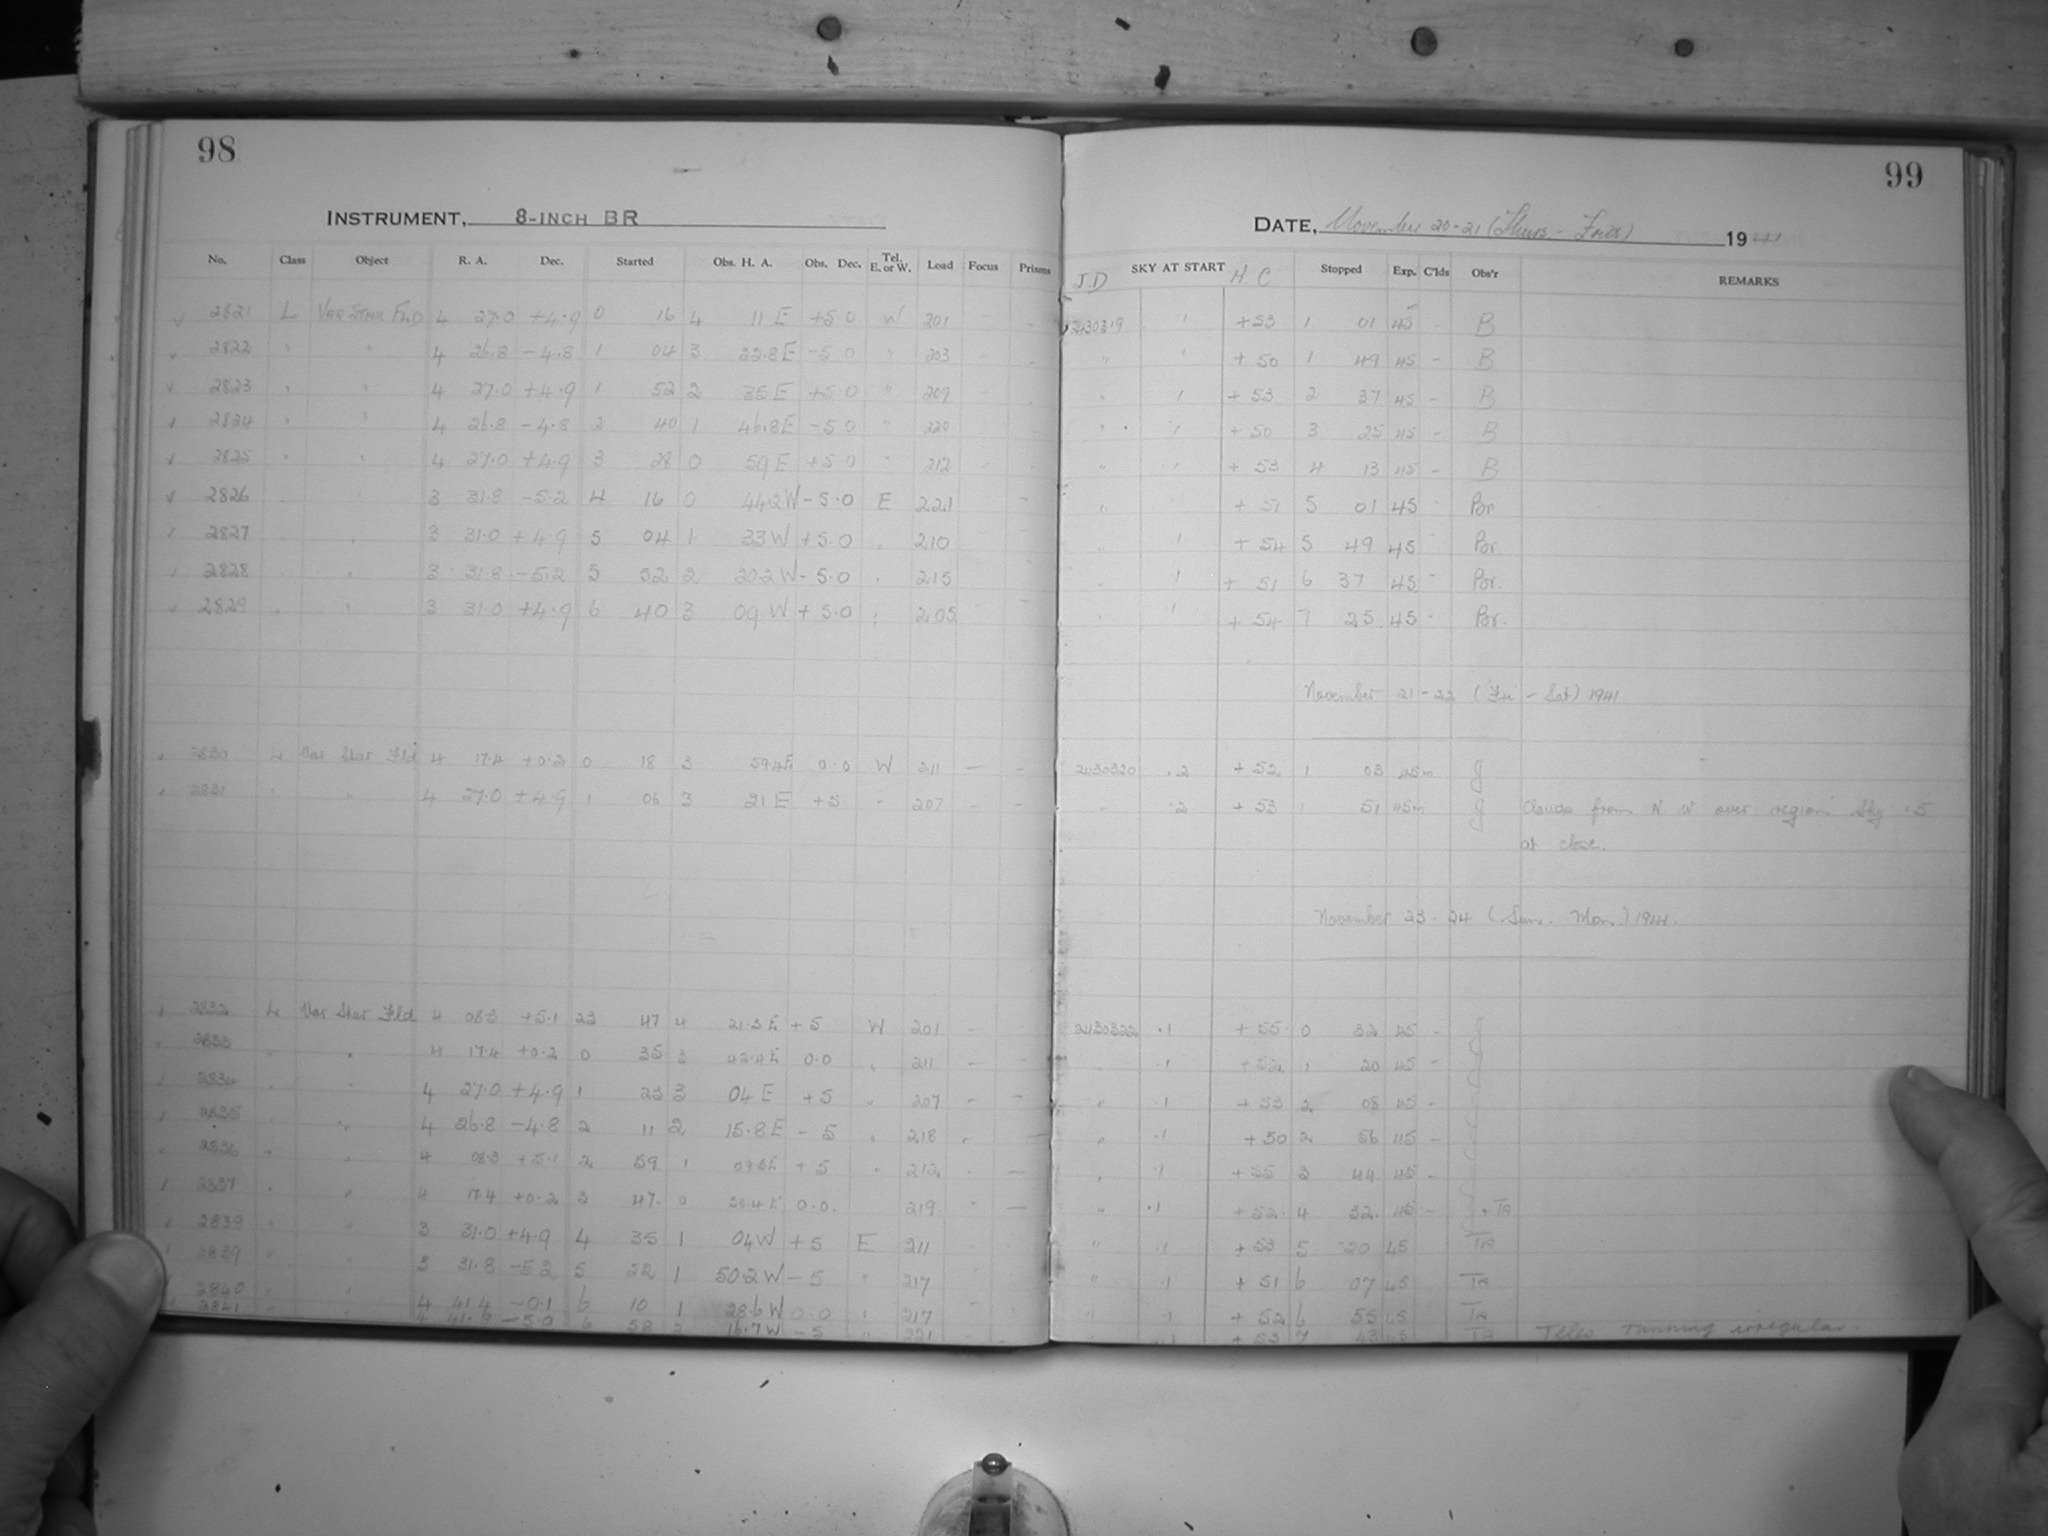 98
INSTRUMENT, 8-INCH BR
No. Class Object R. A. Dec. Started Obs. H. A. Obs. Dec. Tel. E. or W. Load Focus Prisms
2821 L VAR STAR FLD 4 27.0 +4.9 0 16 4 11 E +5 0 W 201
2822 " " 4 26.8 -4.8 1 04 3 22.8 E -5 0 " 203
2823 " " 4 27.0 +4.9 1 52 2 35 E +5 0 " 209
2824 " " 4 26.8 -4.8 2 40 1 46.8 E -5 0 " 220
2825 " " 4 27.0 +4.9 3 28 0 59 E +5 0 " 212
2826 3 31.8 -5.2 4 16 0 44.2 W -5.0 E 221
2827 3 31.0 +4.9 5 04 1 33 W +5.0 210
2828 3 31.8 -5.2 5 52 2 20.2 W -5.0 215
2829 3 31.0 +4.9 6 40 3 09 W +5.0 205
2830 L Var Star Fld 4 17.4 +0.2 0 18 3 59.4 E 0.0 W 211 -
2831 " 4 27.0 +4.9 1 06 3 21 E +5 " 207 -
2832 L Var Star Fld 4 08.3 +5.1 23 47 4 21.3 E +5 W 201 -
2833 " 4 17.4 +0.2 0 35 3 42.4 E 0.0 211 -
2834 4 27.0 +4.9 1 23 3 04 E +5 207 -
2835 4 26.8 -4.8 2 11 2 15.8 E -5 218
2836 4 08.3 +5.1 2 59 1 09.3 E +5 212 -
2837 4 17.4 +0.2 3 47 0 30.4 E 0.0 219 -
2839 3 31.0 +4.9 4 35 1 04 W +5 E 211
2839 3 31.8 -5.2 5 22 1 50.2 W -5 217
2840 4 41.4 -0.1 6 10 1 28.6 W 0.0 217
2841 4 -5.0 6 58 2 16.7 W -5 221
99
DATE, November 20-21 (Thurs - Frid) 1941
J.D SKY AT START H.C Stopped Exp. C'lds Obs'r REMARKS
2430319 1 +53 1 01 45 B
" 1 +50 1 49 45 - B
" 1 +53 2 37 45 - B
" 1 +50 3 25 45 - B
" 1 +53 4 13 45 - B
" +51 5 01 45 - Br
" 1 +54 5 49 45 - Br
1 +51 6 37 45 - Br.
1 +54 7 25 45 - Br.
November 21-22 (Fri - Sat) 1941
2430320 .2 +52 1 03 45m g
" .2 +53 1 51 45m g Clouds from N W over region. Sky .5
at close.
November 23-24 (Sun. Mon.) 1941.
2430322 .1 +55 0 32 45 -
" .1 +52 1 20 45 -
" .1 +53 2 08 45 -
" .1 +50 2 56 45 -
" .1 +55 3 44 45 -
" .1 +52 4 32 45 - + TA
" .1 +53 5 20 45 TA
" .1 +51 6 07 45 TA
" .1 +52 6 55 45 TA
.1 7 43 45 TA Teles running irregular.